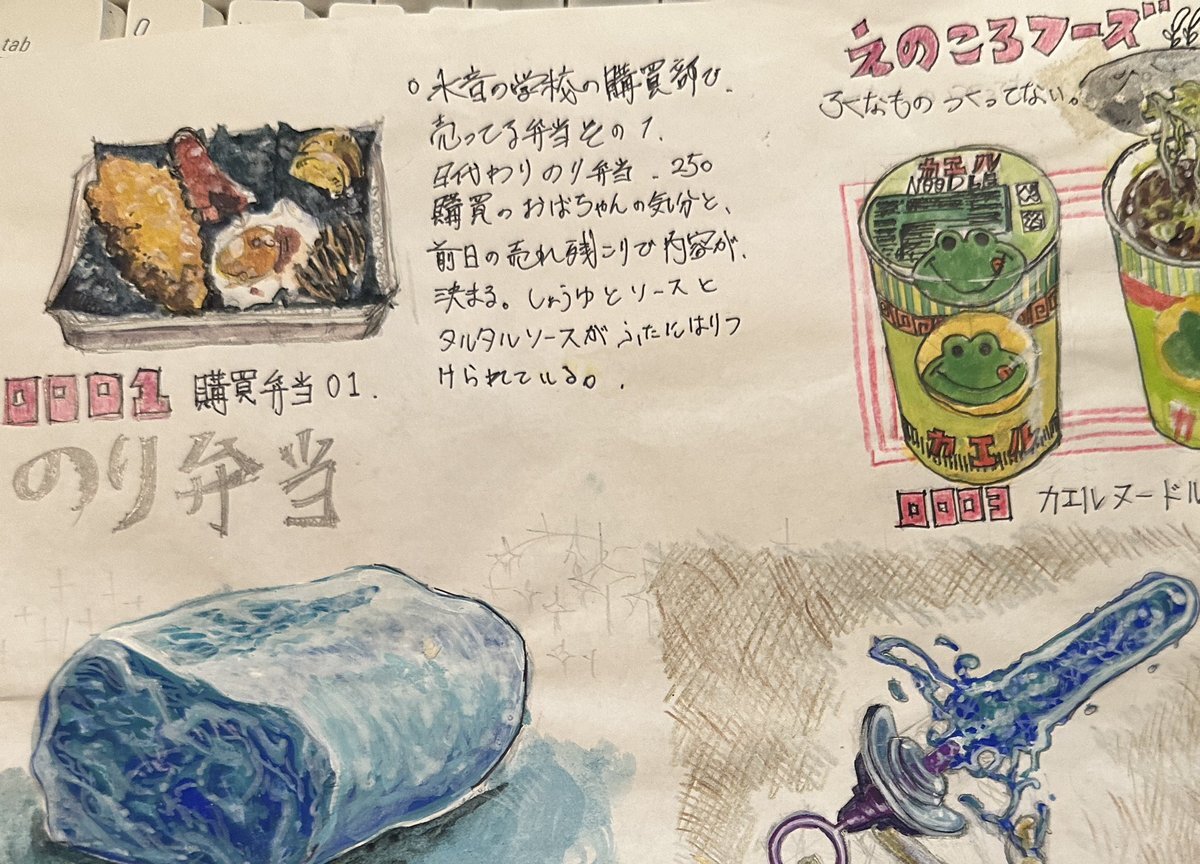 tab
○ 水音の学校の購買部で、
売ってる弁当その1.
日代わりのり弁当.250
購買のおばちゃんの気分と、
前日の売れ残こりで内容が、
決まる。しょうゆとソースと
タルタルソースがふたにはりつ
けられている。.
0001 購買弁当01.
のり弁当
えのころフーズ
ろくなものつくってない。
カエル
NOODLE
カエル
0003 カエルヌードル